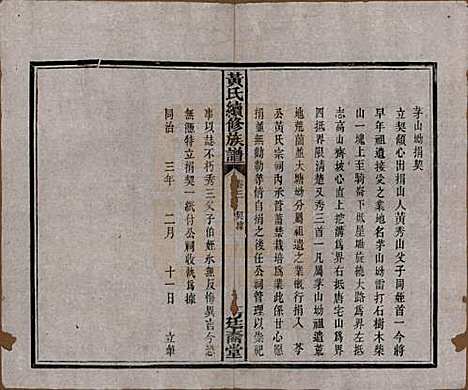 茅山坳捐契
立契願心出捐山人黃秀山父子同姪首一今將
早年祖遺接受之業地名茅山坳雷打石樹木柴
山一塊上至騎崙下低星塘旋繞大路爲界左
志高山齊坡心直上挖溝爲界右抵唐宅山爲
界四抵界限清楚又秀三首一凡屬茅山坳祖遺荒
地荒薗並大塘坳分屬祖遺之業概行捐入
公黃氏宗祠丙承首蓄禁栽培爲業此係甘心愿
捐並無勒勒等情自捐之後任公祠管理以崇祀
事以誌不朽秀三父子伯姪永無反悔異言今恐
無憑特立捐契一紙付公祠收執爲據
同治 三年 二月 十一日 立
黃氏續修族譜
卷三 契據